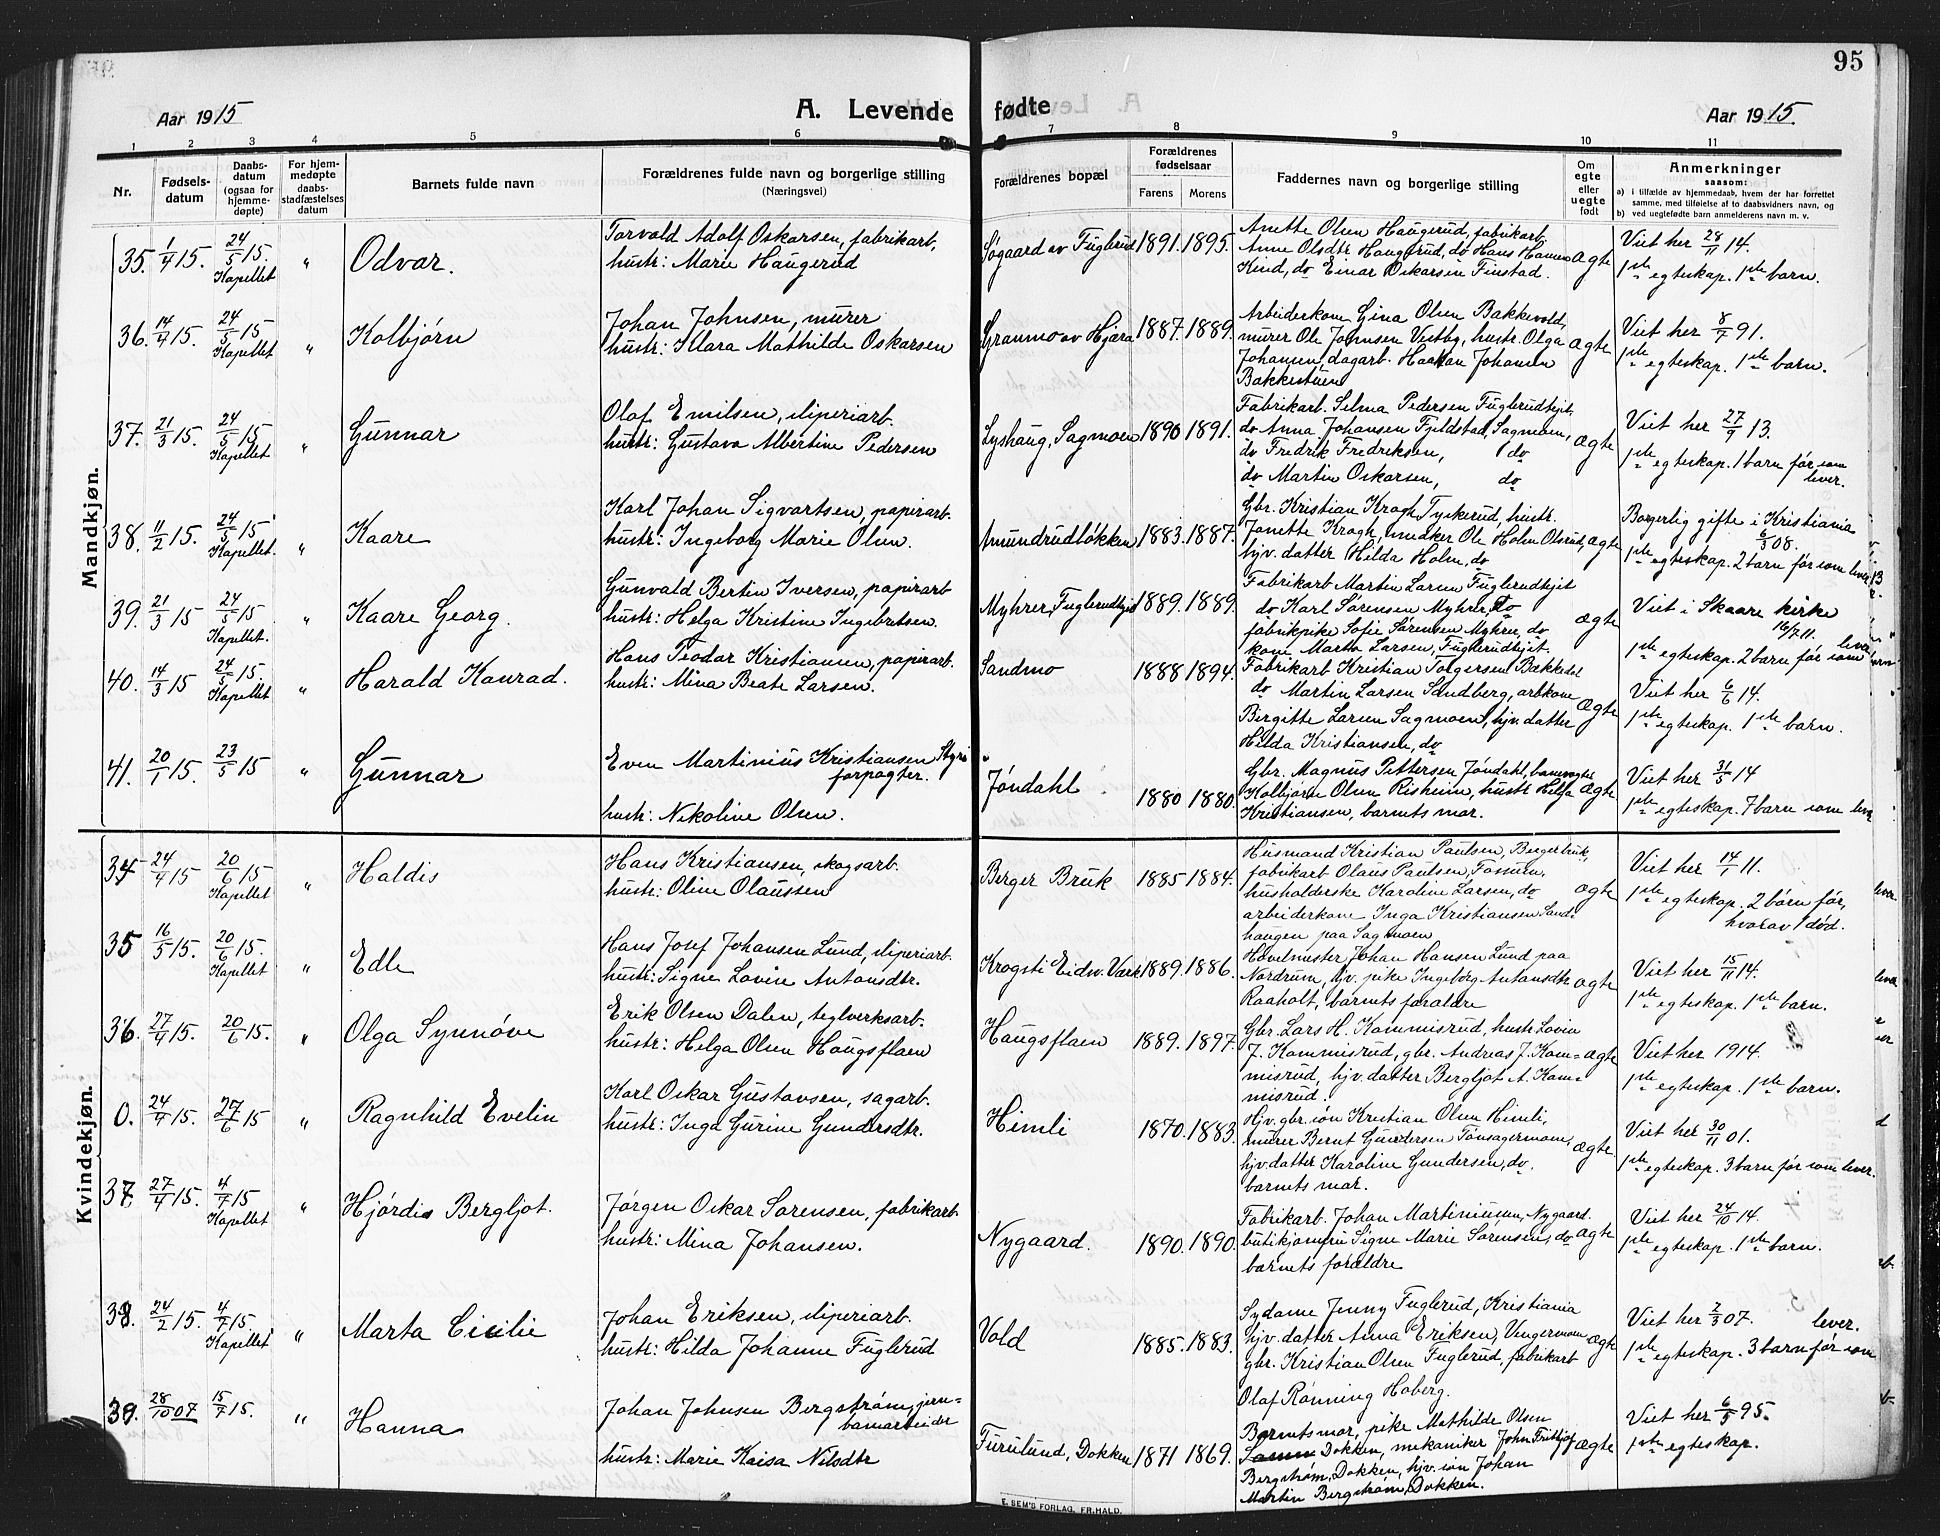 95
Aar 1915
A. Levende fødte
Aar 1915.
1 2 3 4 5 6 7 8 9 10 11
Nr.
Fødsels-
datum
Daabs-
datum
(ogsaa for
hjemme-
døpte)
For hjem-
medøpte
daabs-
stadfæstelses
datum
Barnets fulde navn
Forældrenes fulde navn og borgerlige stilling
(Næringsvei)
Forældrenes bopæl
Forældrenes
fødselsaar
Farens Morens
Faddernes navn og borgerlige stilling
Om
egte
eller
uegte
født
Anmerkninger
saasom:
a) i tilfælde av hjemmedaab, hvem der har forrettet
samme, med tilføielse af to daabsvidners navn, og
b) ved uegtefødte barn anmelderens navn m. v.
Mandkjøn.
35. 1/4 15. 24/5 15. Kapellet " Odvar.
Torvald Adolf Oskarsen, fabrikarb,
hustr: Marie Haugerud
Søgaard av Fuglerud 1891. 1895.
Anette Olsen Haugerud, fabrikarb.
Anne Olsdtr. Haugerud, do Hans Hansen
Kind, do Einar Oskarsen Finstad.
Ægte
Viet her 28/11 14.
1ste egteskap. 1ste barn.
36. 14/4 15. 24/5 15 Kapellet " Kolbjørn
Johan Johnsen, murer
hustr: Klara Mathilde Oskarsen
Granmo av Hjæra 1887. 1889.
Arbeiderkone Gina Olsen Bakkevold,
murer Ole Johnsen Vestby, hustr. Olga
Johansen, dagarb. Haakon Johansen
Bakkestuen
Ægte
Viet her 8/7 91.
1ste egteskap. 1ste barn.
37. 21/3 15. 24/5 15 Kapellet " Gunnar
Olaf Emilsen, sliperiarb.
hustr: Gustava Albertine Pedersen
Lyshaug, Sagmoen 1890 1891.
Fabrikarb. Selma Pedersen Fuglerudhjet,
do Anna Johansen Fjeldstad, Sagmoen,
do Fredrik Fredriksen, do
do Martin Oskarsen, do
Ægte
Viet her 27/9 13.
1ste egteskap. 1 barn før som
lever.
38. 11/2 15. 24/5 15 Kapellet. " Kaare
Karl Johan Sigvartsen, papirarb.
hustr: Ingeborg Marie Olsen.
Amundrudløkken 1883. 1887.
Gbr. Kristian Krogh Tyskerud, hustr.
Janette Krogh, snedker Ole Holm Olsrud,
hjv. datter Hilda Holm, do
Ægte
Borgerlig gifte i Kristiania
6/3 08.
1ste egteskap. 2 barn før som lever.
39. 21/3 15 24/5 15 Kapellet. " Kaare Georg.
Gunvald Bertin Iversen, papirarb
hustr: Helga Kristine Ingebretsen.
Myhrer, Fuglerudhjet 1889. 1889.
Fabrikarb Martin Larsen Fuglerudhjet
do Karl Sørensen Myhrer, do
fabrikpike Sofie Sørensen Myhrer, do
kone Martha Larsen, Fuglerudhjet.
Ægte
Viet i Skaare kirke
16/7 11.
1ste egteskap. 2 barn før som lever
40. 14/3 15 24/5 15. Kapellet " Harald Konrad.
Hans Teodor Kristiansen, papirarb.
hustr: Mina Beate Larsen.
Sandmo 1888 1894.
Fabrikarb Kristian Torgersen Bakkedel
do Martin Larsen Sandberg, arbkone
Birgitte Larsen Sagmoen, hjv. datter
Hilda Kristiansen, do
Ægte
Viet her 6/6 14.
1ste egteskap. 1ste barn.
41. 20/1 15. 23/5 15 " Gunnar
Even Martinius Kristiansen Styri
forpagter.
hustr: Nikoline Olsen.
Jøndahl 1880 1880.
Gbr. Magnus Pettersen Jøndahl, banevogter
Kolbjørn Olsen Risheim, hustr Helga
Kristiansen, barnets mor.
Ægte
Viet her 31/5 14
1ste egteskap. 7 barn som lever
Kvindekjøn.
34 24/4 15 20/6 15 Kapellet " Haldis
Hans Kristiansen, skogsarb.
hustr: Oline Olaussen
Berger Bruk 1885 1884.
Husmand Kristian Paulsen, Bergerbruk,
fabrikarb Olaus Paulsen, Fossum,
husholderske Karoline Larsen, do
arbeiderkone Inga Kristiansen Sand-
haugen paa Sagmoen
Ægte
Viet her 14/1 11.
1ste egteskap. 2 barn før,
hvorav 1 død.
35 16/5 15. 20/6 15. Kapellet " Edle
Hans Josef Johansen Lund, sliperiarb.
hustr: Signe Lovise Antonsdtr.
Krogsti Eidsv. Værk 1889. 1886.
Høvelmester Johan Hansen Lund paa
Nordrum, hjv. pike Ingeborg Antonsdtr
Raaholt, barnets forældre
Ægte
Viet her 15/11 14.
1ste egteskap. 1ste barn.
36. 27/4 15. 20/6 15. " Olga Synnøve
Erik Olsen Dalen, teglverksarb.
hustr: Helga Olsen Haugsflaen
Haugsflaen 1889. 1897.
Gbr. Lars H. Kommisrud, hustr Lovisa
J. Kommisrud, gbr. Andreas J. Kom-
misrud, hjv. datter Bergljot A. Kom-
misrud.
Ægte
Viet her 1914.
1ste egteskap. 1ste barn.
0. 24/4 15. 27/6 15 " Ragnhild Evelin
Karl Oskar Gustavsen, sagarb.
hustr: Inga Gurine Gundersdtr.
Himli 1870. 1883.
Hjv. gbr. søn Kristian Olsen Himli,
murer Bernt Gundersen Tønsagermoen,
hjv. datter Karoline Gundersen, do.
barnets mor.
Ægte
Viet her 30/11 01.
1ste egteskap. 3 barn før som lever.
37 27/4 15. 4/7 15 Kapellet " Hjørdis Bergljot.
Jørgen Oskar Sørensen, fabrikarb.
hustr: Mina Johansen.
Nygaard. 1890. 1890.
Fabrikarb. Johan Martiniusen, Nygaard.
butikjomfru Signe Marie Sørensen, do
barnets forældre
Ægte
Viet her 24/10 14.
1ste egteskap. 1ste barn.
38. 24/2 15. 4/7 15 Kapellet " Marta Cicilie
Johan Eriksen, sliperiarb.
hustr: Hilda Johanne Fuglerud
Vold 1885. 1883.
Sydame Jenny Fuglerud, Kristiania
hjv. datter Anna Eriksen, Vengermoen
gbr. Kristian Olsen Fuglerud, fabrikarb
Olaf Rønning Hoberg.
Ægte
Viet her 2/3 07. lever.
1ste egteskap. 3 barn før som
39. 28/10 07 15/7 15. " Hanna
Johan Johnsen Bergstrøm, jern-
banearbeider
hustr: Marie Kaisa Nilsdtr
Furulund, Dokken 1871 1869.
Barnets mor, pike Mathilde Olsen
Dokken, mekaniker John Fritjof
Bergstrøm, Dokken, hjv. søn Johan
Martin Bergstrøm, Dokken.
Ægte
Viet her 6/5 95.
1ste egteskap.
E. SEM'S FORLAG, FR.HALD.